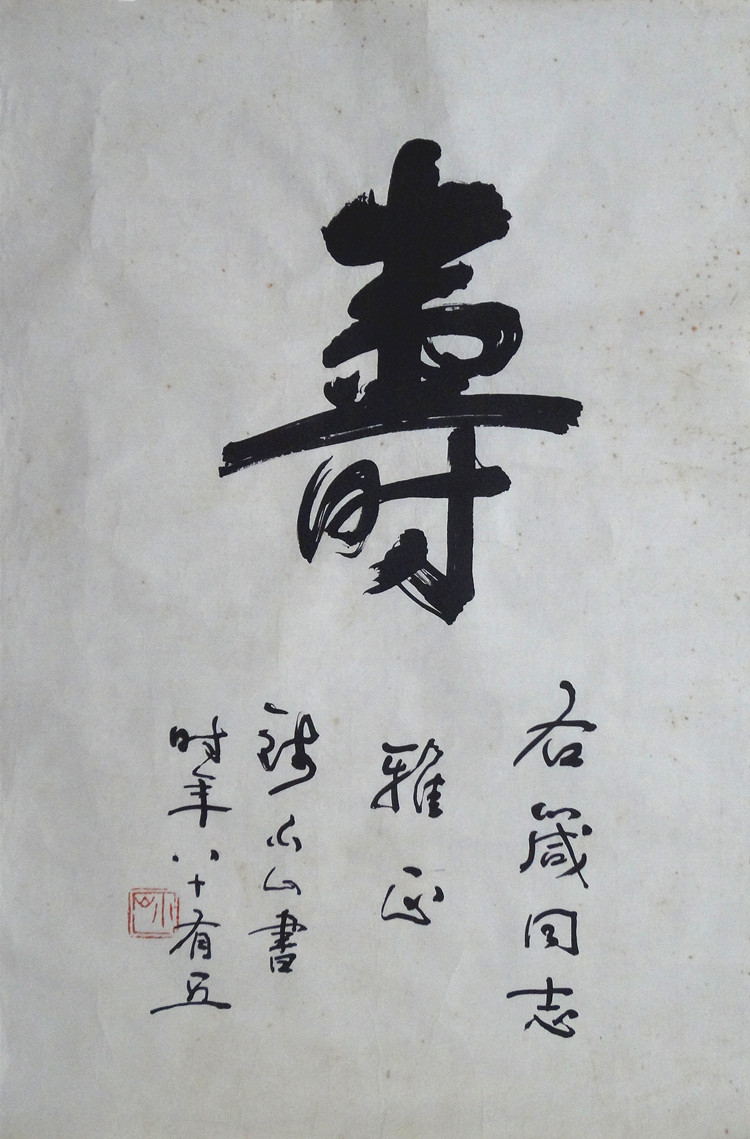 壽
右箴同志
雅正
钱小山書
时年八十有五
小山